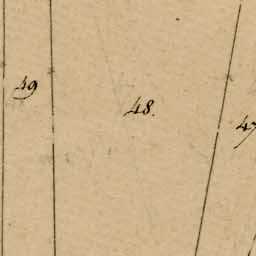 49
48.
47